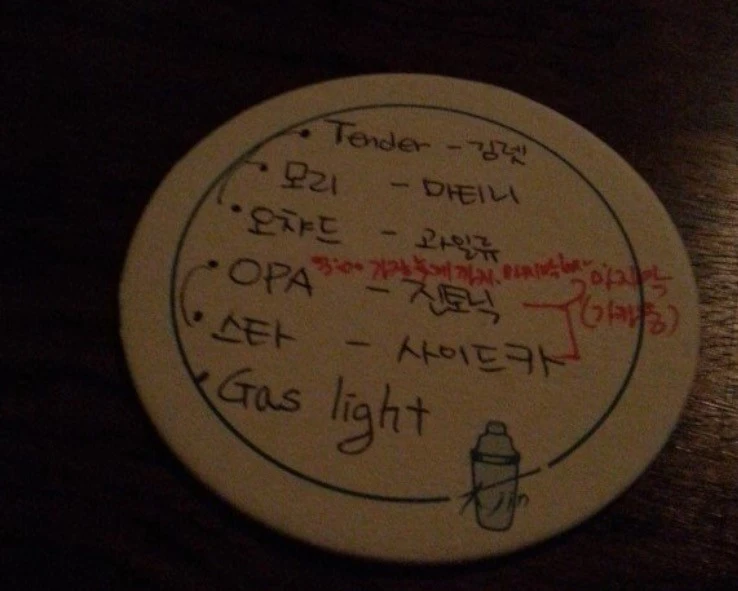 • Tender - 김렛
• 모리 - 마티니
• 오챠드 - 과일류
• OPA - 진토닉
• 스타 - 사이드카
마지막
Gas light